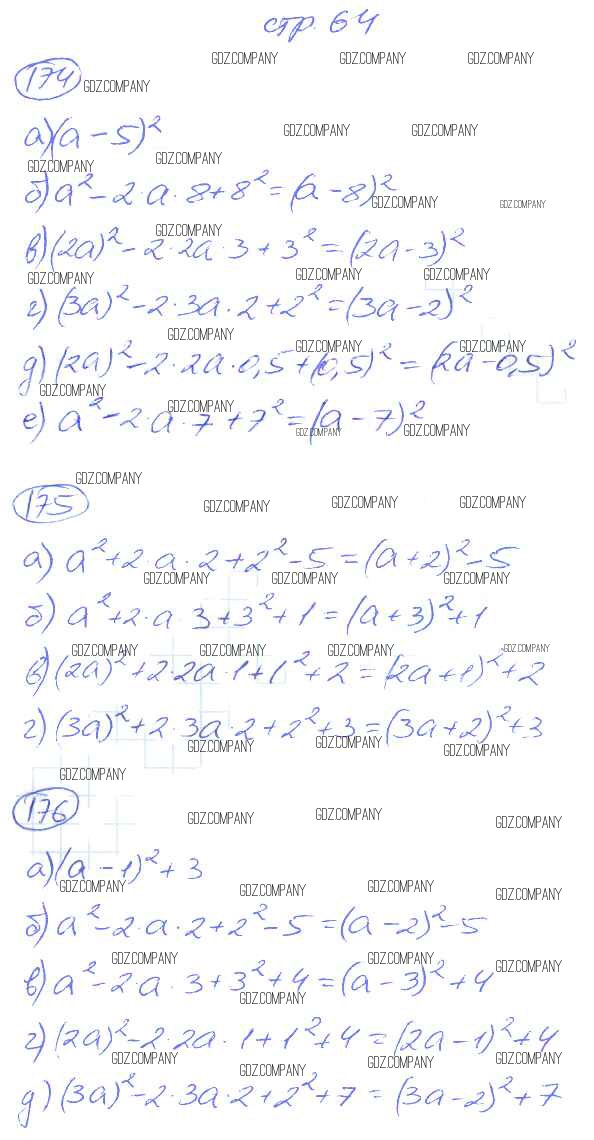 стр. 64
GDZ.COMPANY GDZ.COMPANY GDZ.COMPANY
174 GDZ.COMPANY
а) (a - 5)²
GDZ.COMPANY GDZ.COMPANY
GDZ.COMPANY GDZ.COMPANY
б) a² - 2·a·8 + 8² = (a - 8)²
GDZ.COMPANY GDZ.COMPANY
GDZ.COMPANY
в) (2a)² - 2·2a·3 + 3² = (2a - 3)²
GDZ.COMPANY GDZ.COMPANY GDZ.COMPANY
г) (3a)² - 2·3a·2 + 2² = (3a - 2)²
GDZ.COMPANY GDZ.COMPANY GDZ.COMPANY
д) (2a)² - 2·2a·0,5 + (0,5)² = (2a - 0,5)²
GDZ.COMPANY GDZ.COMPANY
е) a² - 2·a·7 + 7² = (a - 7)²
GDZ.COMPANY GDZ.COMPANY
GDZ.COMPANY
175 GDZ.COMPANY GDZ.COMPANY GDZ.COMPANY
а) a² + 2·a·2 + 2² - 5 = (a + 2)² - 5
GDZ.COMPANY GDZ.COMPANY GDZ.COMPANY
б) a² + 2·a·3 + 3² + 1 = (a + 3)² + 1
GDZ.COMPANY GDZ.COMPANY GDZ.COMPANY GDZ.COMPANY
в) (2a)² + 2·2a·1 + 1² + 2 = (2a + 1)² + 2
г) (3a)² + 2·3a·2 + 2² + 3 = (3a + 2)² + 3
GDZ.COMPANY GDZ.COMPANY GDZ.COMPANY
GDZ.COMPANY
176 GDZ.COMPANY GDZ.COMPANY GDZ.COMPANY
а) (a - 1)² + 3
GDZ.COMPANY GDZ.COMPANY GDZ.COMPANY GDZ.COMPANY
б) a² - 2·a·2 + 2² - 5 = (a - 2)² - 5
GDZ.COMPANY GDZ.COMPANY GDZ.COMPANY
в) a² - 2·a·3 + 3² + 4 = (a - 3)² + 4
GDZ.COMPANY
г) (2a)² - 2·2a·1 + 1² + 4 = (2a - 1)² + 4
GDZ.COMPANY GDZ.COMPANY GDZ.COMPANY GDZ.COMPANY
д) (3a)² - 2·3a·2 + 2² + 7 = (3a - 2)² + 7